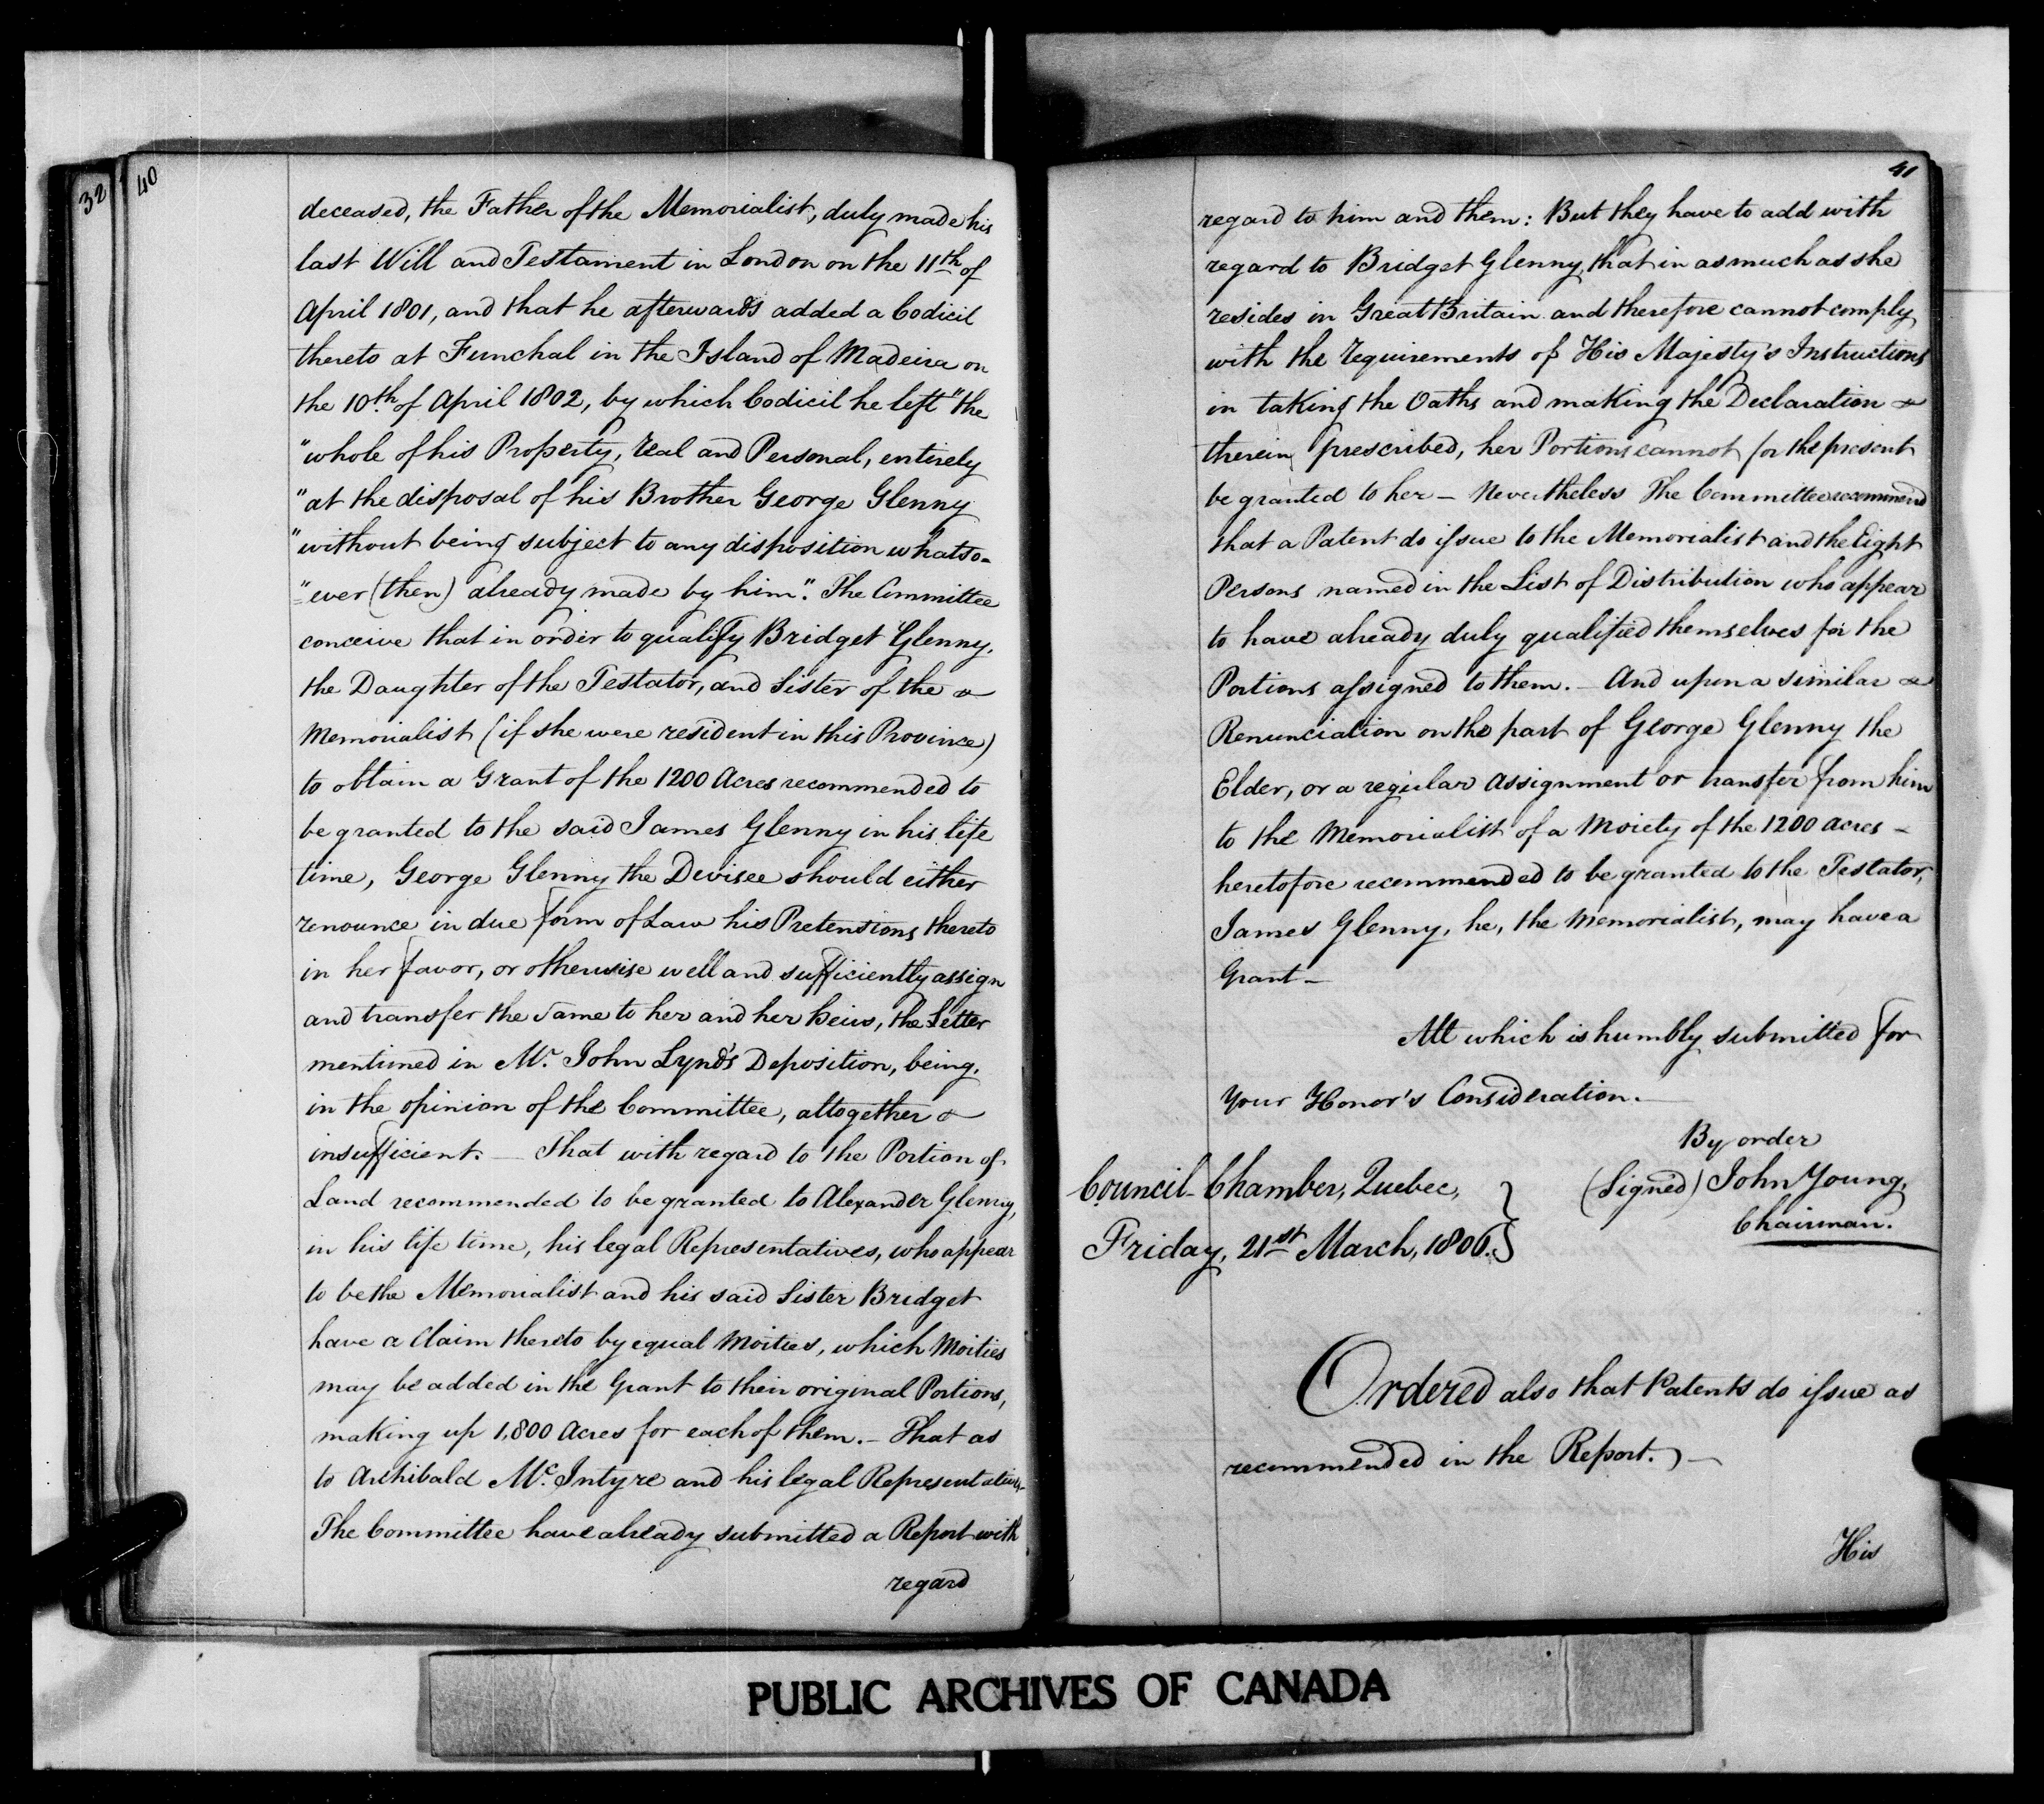 32
40
deceased, the Father of the Memorialist, duly made his
last Will and Testament in London on the 11th of
April 1801, and that he afterwards added a Codicil
thereto at Funchal in the Island of Madeira on
the 10th of April 1802, by which Codicil he left "the
"whole of his Property, real and Personal, entirely
"at the disposal of his Brother George Glenny
"without being subject to any disposition whatso-
"ever (then) already made by him". The Committee
conceive that in order to qualify Bridget Glenny,
the Daughter of the Testator, and Sister of the
Memorialist (if she were resident in this Province)
to obtain a Grant of the 1200 Acres recommended to
be granted to the said James Glenny in his life
time, George Glenny the Devisee should either
renounce in due form of Law his Pretensions thereto
in her favor, or otherwise well and sufficiently assign
and transfer the same to her and her heirs, the Letter
mentioned in Mr. John Lynd's Deposition, being,
in the opinion of the Committee, altogether
insufficient. — That with regard to the Portion of
Land recommended to be granted to Alexander Glenny,
in his life time, his legal Representatives, who appear
to be the Memorialist and his said Sister Bridget
have a Claim thereto by equal Moities, which Moities
may be added in the Grant to their original Portions,
making up 1,800 Acres for each of them. — That as
to Archibald Mc.Intyre and his legal Representatives
The Committee have already submitted a Report with
regard
41
regard to him and them: But they have to add with
regard to Bridget Glenny, that in as much as she
resides in Great Britain and therefore cannot comply
with the requirements of His Majesty's Instructions
in taking the Oaths and making the Declaration
therein prescribed, her Portions cannot for the present
be granted to her — Nevertheless The Committee recommend
that a Patent do issue to the Memorialist and the Eight
Persons named in the List of Distribution who appear
to have already duly qualified themselves for the
Portions assigned to them. — And upon a similar
Renunciation on the part of George Glenny the
Elder, or a regular assignment or transfer from him
to the Memorialist of a Moiety of the 1200 acres —
heretofore recommended to be granted to the Testator,
James Glenny, he, the Memorialist, may have a
Grant —
All which is humbly submitted for
Your Honor's Consideration. —
By order
Council-Chamber, Quebec, } (Signed) John Young,
Chairman.
Friday, 21st March, 1806. }
Ordered also that Patents do issue as
recommended in the Report. —
His
PUBLIC ARCHIVES OF CANADA